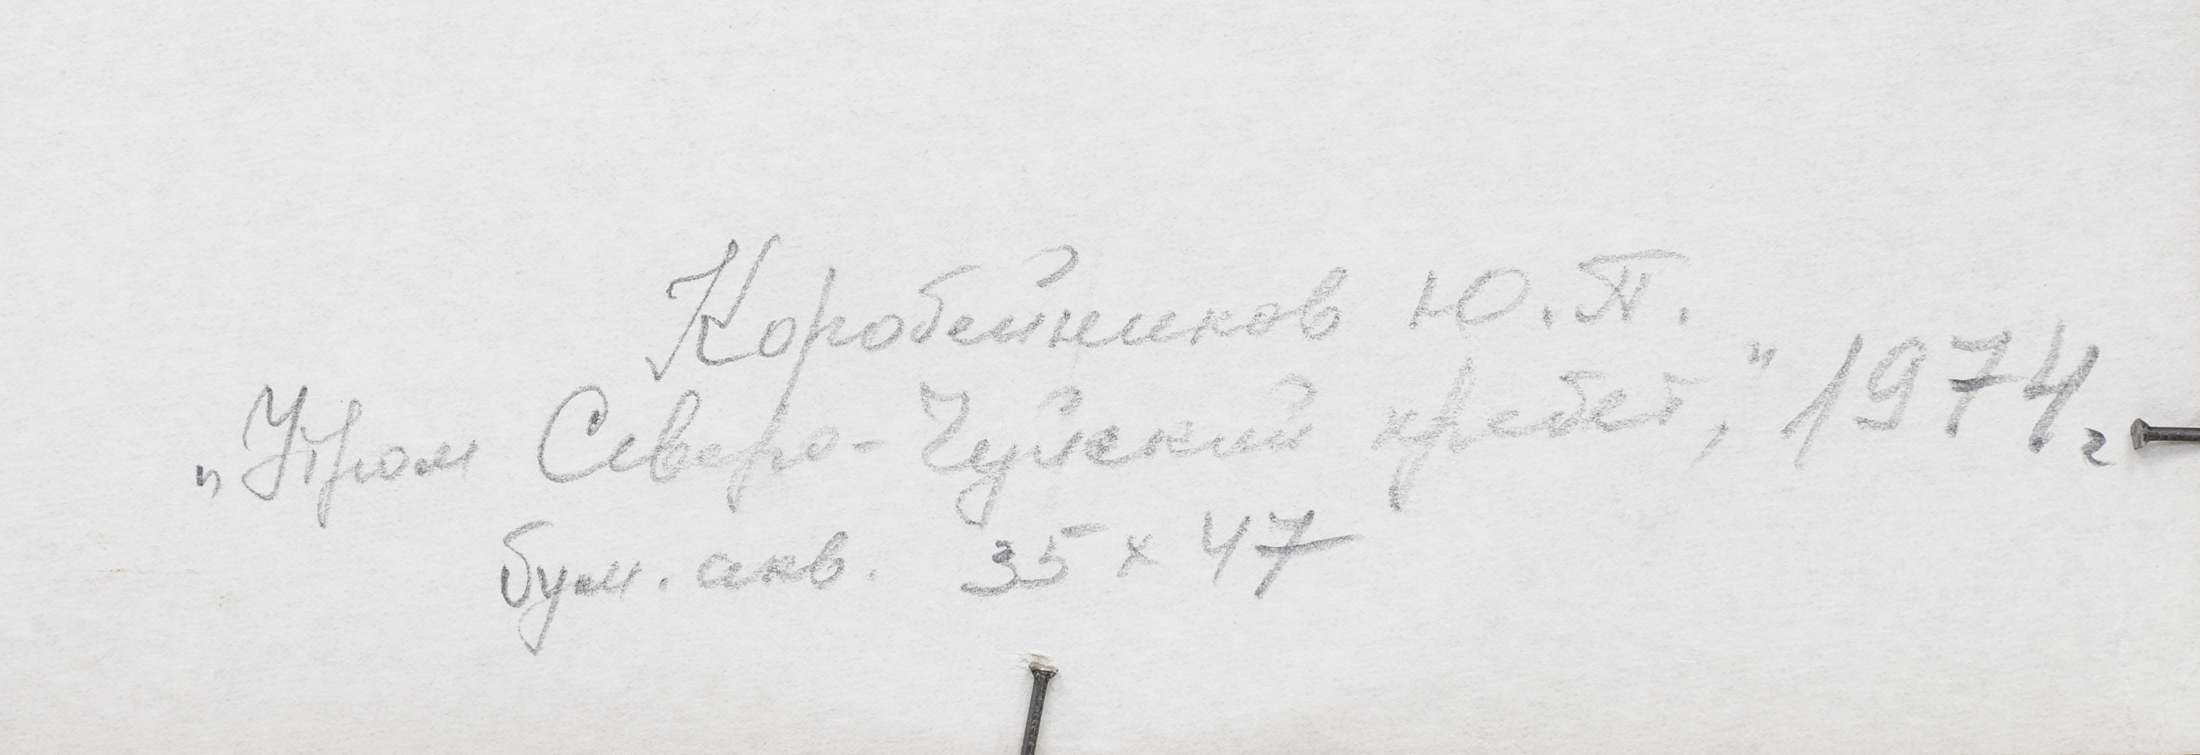 Коробейников Ю.П.
„Утром Северо-Чуйский хребет," 1974г
бум. акв. 35 х 47